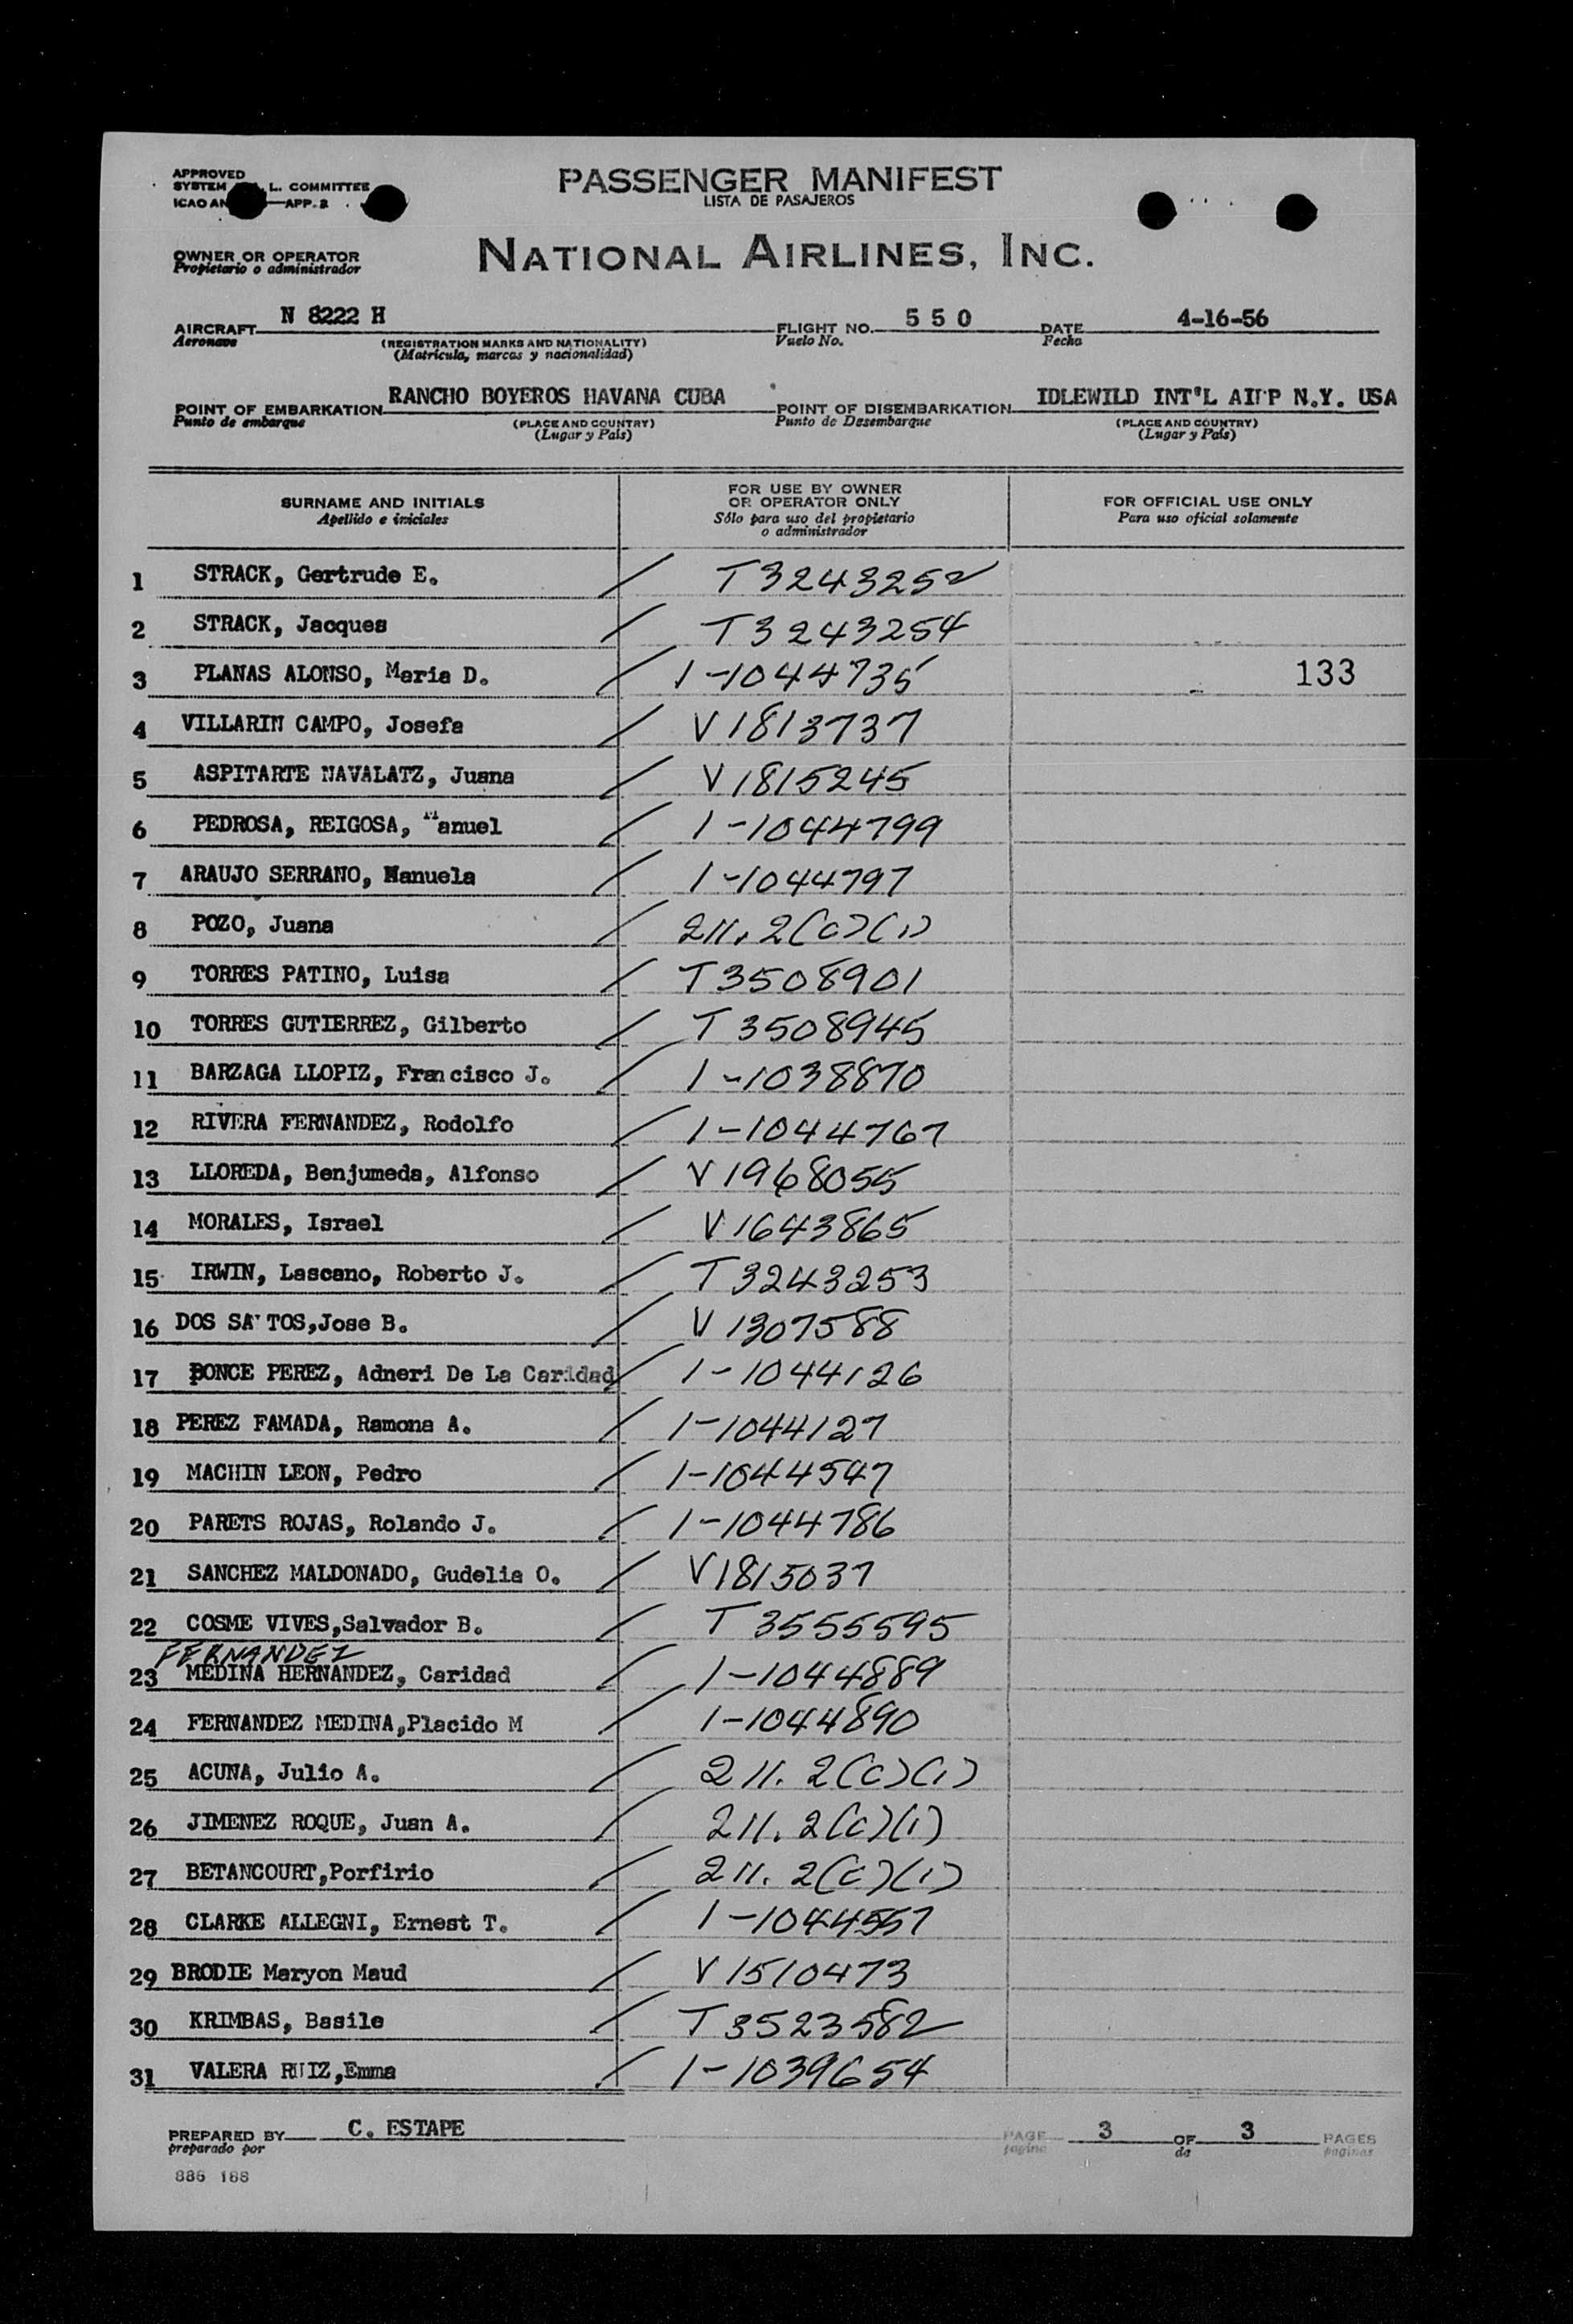 APPROVED
SYSTEM L. COMMITTEE
ICAO AN —APP. 2
PASSENGER MANIFEST
LISTA DE PASAJEROS
OWNER OR OPERATOR
Propietario o administrador
NATIONAL AIRLINES, INC.
AIRCRAFT N 8222 H FLIGHT NO. 5 5 0 DATE 4-16-56
Aeronave (REGISTRATION MARKS AND NATIONALITY) Vuelo No. Fecha
(Matrícula, marcas y nacionalidad)
POINT OF EMBARKATION RANCHO BOYEROS HAVANA CUBA POINT OF DISEMBARKATION IDLEWILD INT'L AIRP N.Y. USA
Punto de embarque (PLACE AND COUNTRY) Punto de Desembarque (PLACE AND COUNTRY)
(Lugar y País) (Lugar y País)
SURNAME AND INITIALS FOR USE BY OWNER OR OPERATOR ONLY FOR OFFICIAL USE ONLY
Apellido e iniciales Sólo para uso del propietario o administrador Para uso oficial solamente
1 STRACK, Gertrude E. / T3243252
2 STRACK, Jacques / T3243254
3 PLANAS ALONSO, Maria D. / 1-1044735 133
4 VILLARIN CAMPO, Josefa / V1813737
5 ASPITARTE NAVALATZ, Juana / V1815245
6 PEDROSA, REIGOSA, Manuel / 1-1044799
7 ARAUJO SERRANO, Manuela / 1-1044797
8 POZO, Juana / 211.2(c)(1)
9 TORRES PATINO, Luisa / T3508901
10 TORRES GUTIERREZ, Gilberto / T3508945
11 BARZAGA LLOPIZ, Francisco J. / 1-1038870
12 RIVERA FERNANDEZ, Rodolfo / 1-1044767
13 LLOREDA, Benjumeda, Alfonso / V1968055
14 MORALES, Israel / V1643865
15 IRWIN, Lascano, Roberto J. / T3243253
16 DOS SANTOS,Jose B. / V1307588
17 PONCE PEREZ, Adneri De La Caridad / 1-1044126
18 PEREZ FAMADA, Ramona A. / 1-1044127
19 MACHIN LEON, Pedro / 1-1044547
20 PARETS ROJAS, Rolando J. / 1-1044786
21 SANCHEZ MALDONADO, Gudelia O. / V1815037
22 COSME VIVES,Salvador B. / T3555595
FERNANDEZ
23 MEDINA HERNANDEZ, Caridad / 1-1044889
24 FERNANDEZ MEDINA,Placido M / 1-1044890
25 ACUNA, Julio A. / 211.2(c)(1)
26 JIMENEZ ROQUE, Juan A. / 211.2(c)(1)
27 BETANCOURT,Porfirio / 211.2(c)(1)
28 CLARKE ALLEGNI, Ernest T. / 1-1044557
29 BRODIE Maryon Maud / V1510473
30 KRIMBAS, Basile / T3523582
31 VALERA RUIZ,Emma / 1-1039654
PREPARED BY C. ESTAPE PAGE 3 OF 3 PAGES
preparado por pagina de paginas
886 188